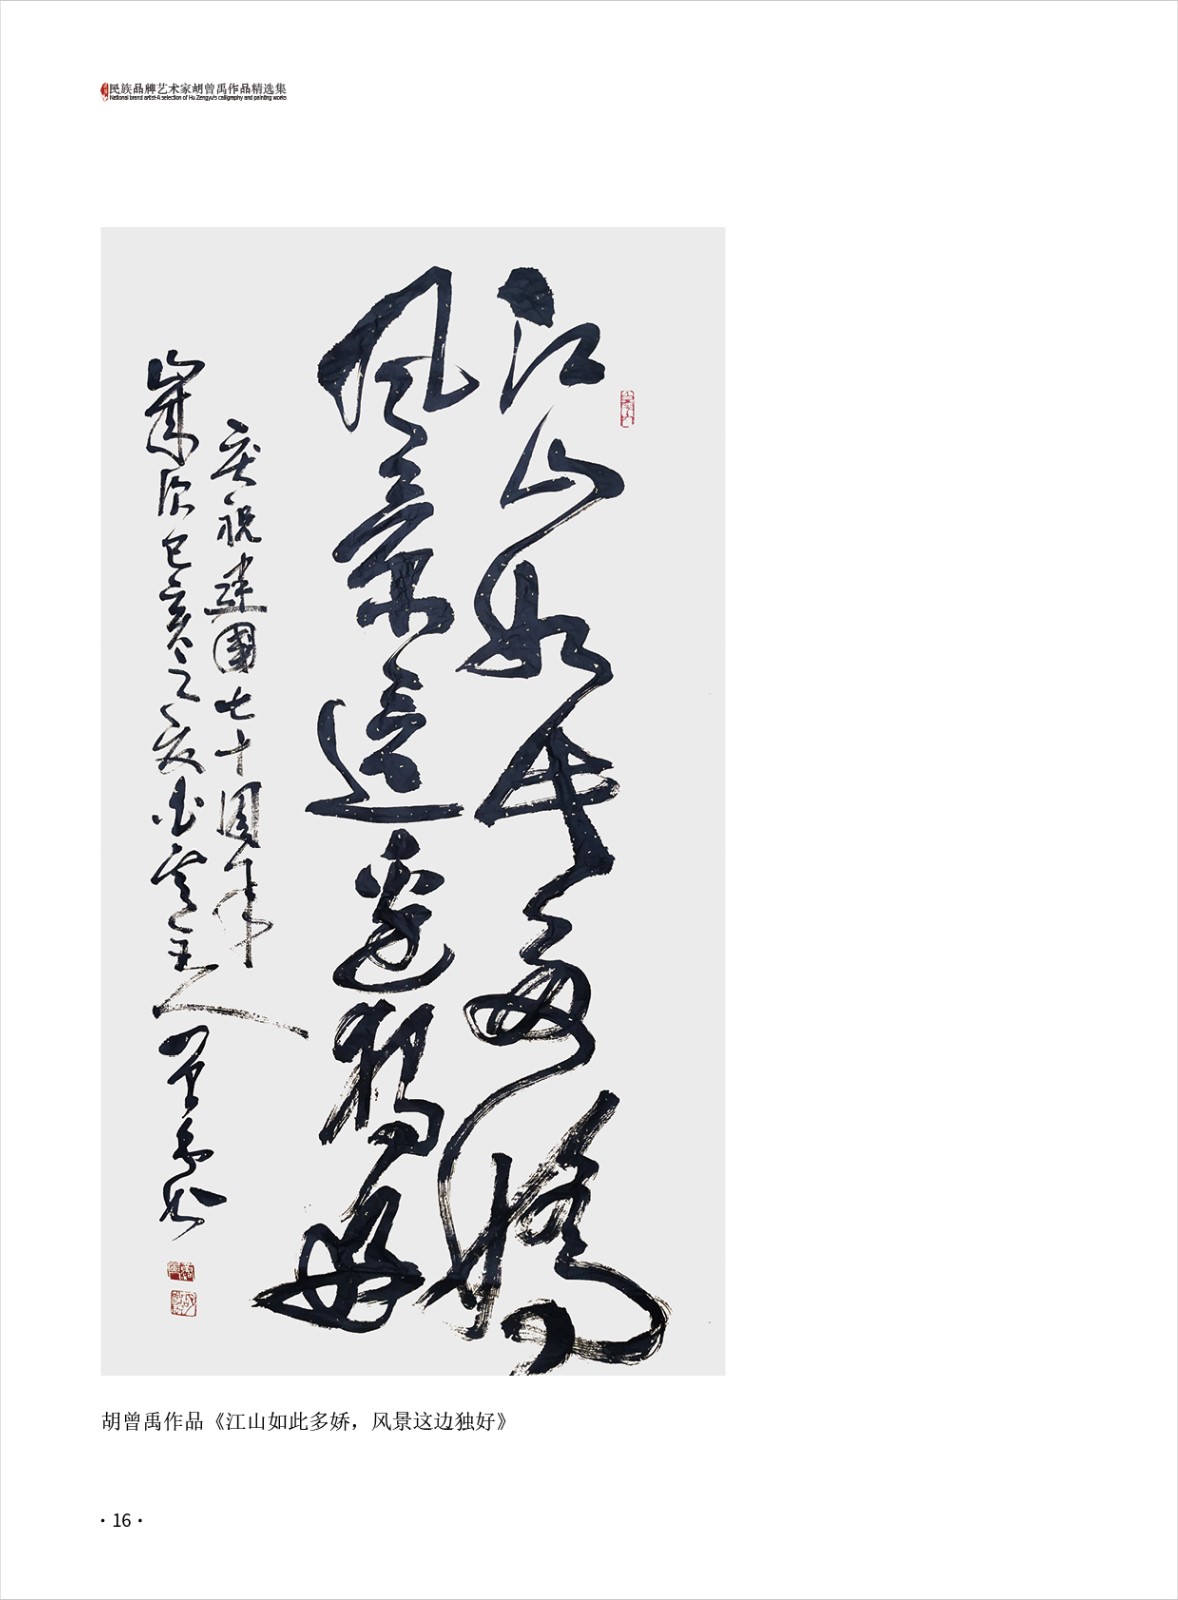 民族品牌艺术家胡曾禹作品精选集
National brand artist-A selection of Hu Zengyu's calligraphy and painting works
江山如此多娇
风景这边独好
庆祝建國七十周年
歲次己亥之夏墨虚主人曾禹书
胡曾禹作品《江山如此多娇，风景这边独好》
·16·